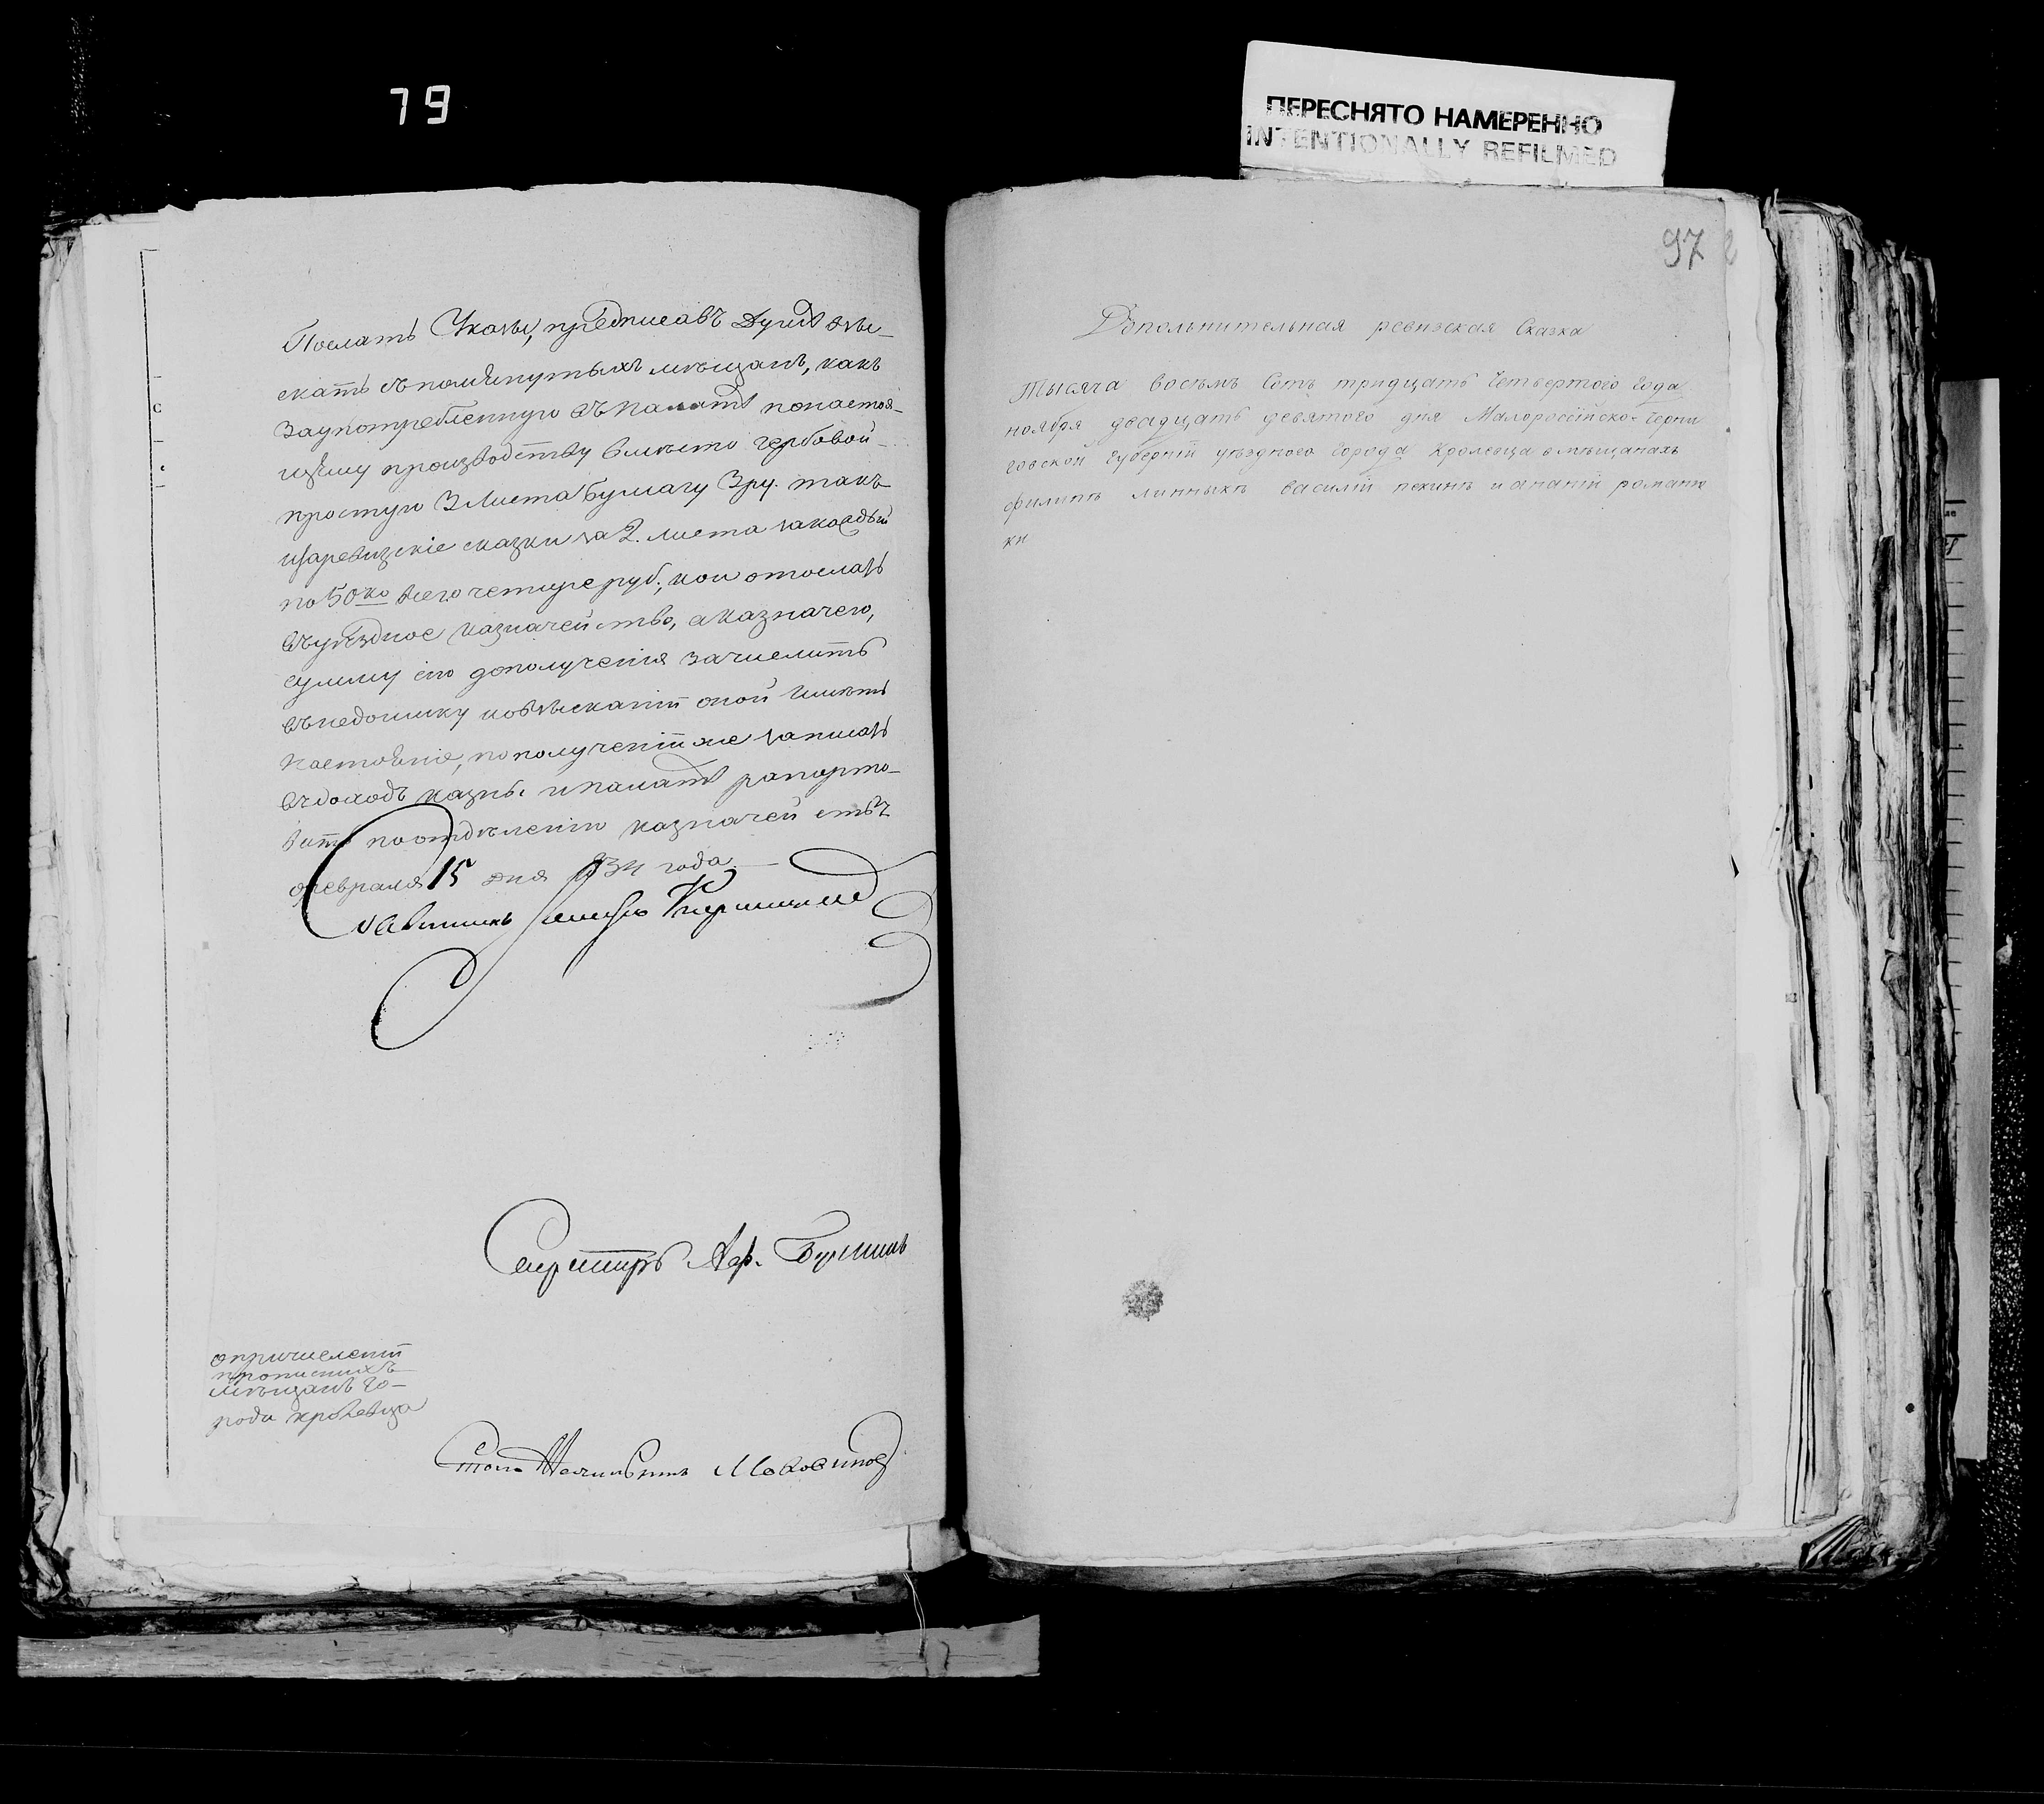 79
ПЕРЕСНЯТО НАМЕРЕННО
INTENTIONALLY REFILMED
Послать Указы, предписавъ Думѣ взы-
скать съ помянутыхъ мещанъ, какъ
заупотребленную въ палатѣ понастоя-
щему производству вместо гербовой
простую 3 листа бумагу 3 ру. такъ
ребизскіе сказки за 2. листа закаждый
по 50 ко всего четыре руб., кои отослать
въ уѣздное казначейство, а казначею,
сумму сію дополученія зачислить
въ недоимку ко взысканіи оной иметь
настояніе, пополученіи же записать
въ доходъ казны и палатѣ рапорто-
вать поотделенію казначействъ
февраля 15 дня 834 года
Секретарь
опричислении
прописныхъ
мещанъ го-
рода кролевца
Столоначальникъ
97
Допольнительная ревизская Сказка
Тысяча восемъ Сотъ тридцать Четвертого Года
ноября двадцать девятого дня Малоросійско-Черни
говской Губерній уезднаго Города Кролевца о мещанахъ
филипъ линныкъ василій пекинъ и ананій романъ
ки